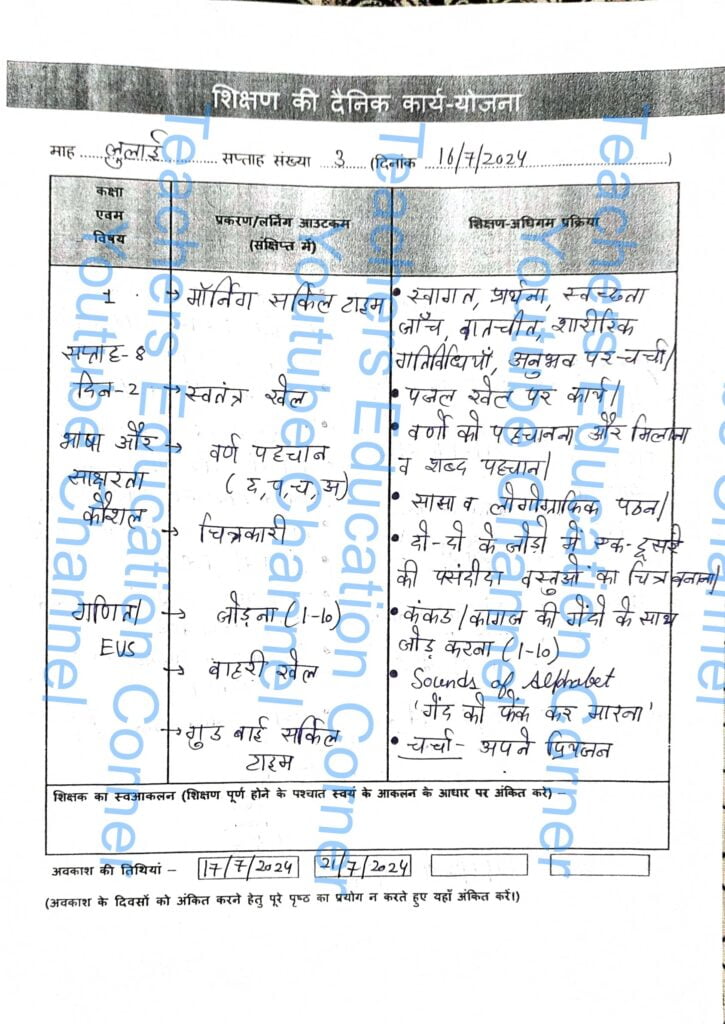 शिक्षण की दैनिक कार्य-योजना
माह ..... जुलाई ............ सप्ताह संख्या ... 3 .... (दिनांक ... 16/7/2024 ..............................)
कक्षा एवम विषय
प्रकरण/लर्निंग आउटकम (संक्षिप्त में)
शिक्षण-अधिगम प्रक्रिया
1
→ मॉर्निंग सर्किल टाइम
• स्वागत, प्रार्थना, स्वच्छता
जाँच, बातचीत, शारीरिक
गतिविधियाँ, अनुभव पर-चर्चा।
सप्ताह-8
दिन-2
→ स्वतंत्र खेल
• पजल खेल पर कार्य।
भाषा और
साक्षरता
कौशल
→ वर्ण पहचान
(द,प,च,अ)
• वर्णो को पहचानना और मिलाना
व शब्द पहचान।
• सासा व लोगोग्राफिक पठन।
→ चित्रकारी
• दो-दो के जोडो में एक-दूसरे
की पसंदीदा वस्तुओं का चित्र बनाना।
गणित/
EVS
→ जोड़ना (1-10)
• कंकड/कागज की गेंदो के साथ
जोड़ करना (1-10)
→ बाहरी खेल
• Sounds of Alphabet
'गेंद को फेंक कर मारना'
→ गुड बाई सर्किल
टाइम
• चर्चा- अपने प्रियजन
शिक्षक का स्वआकलन (शिक्षण पूर्ण होने के पश्चात स्वयं के आकलन के आधार पर अंकित करे) –
अवकाश की तिथियां – 17/7/2024 21/7/2024
(अवकाश के दिवसों को अंकित करने हेतु पूरे पृष्ठ का प्रयोग न करते हुए यहाँ अंकित करें।)
Teachers Education Corner
Youtube Channel
Teachers Education Corner
Youtube Channel
Teachers Education Corner
Youtube Channel